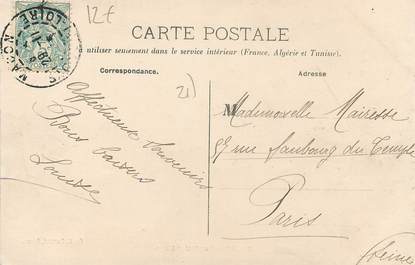 12€
CARTE POSTALE
utiliser seulement dans le service intérieur (France, Algérie et Tunisie).
Correspondance.
Adresse
21)
Affectueux Souvenirs
Bons baisers
M
Mademoiselle Mairesse
faubourg du Temple
Paris
(Seine
LOIRE